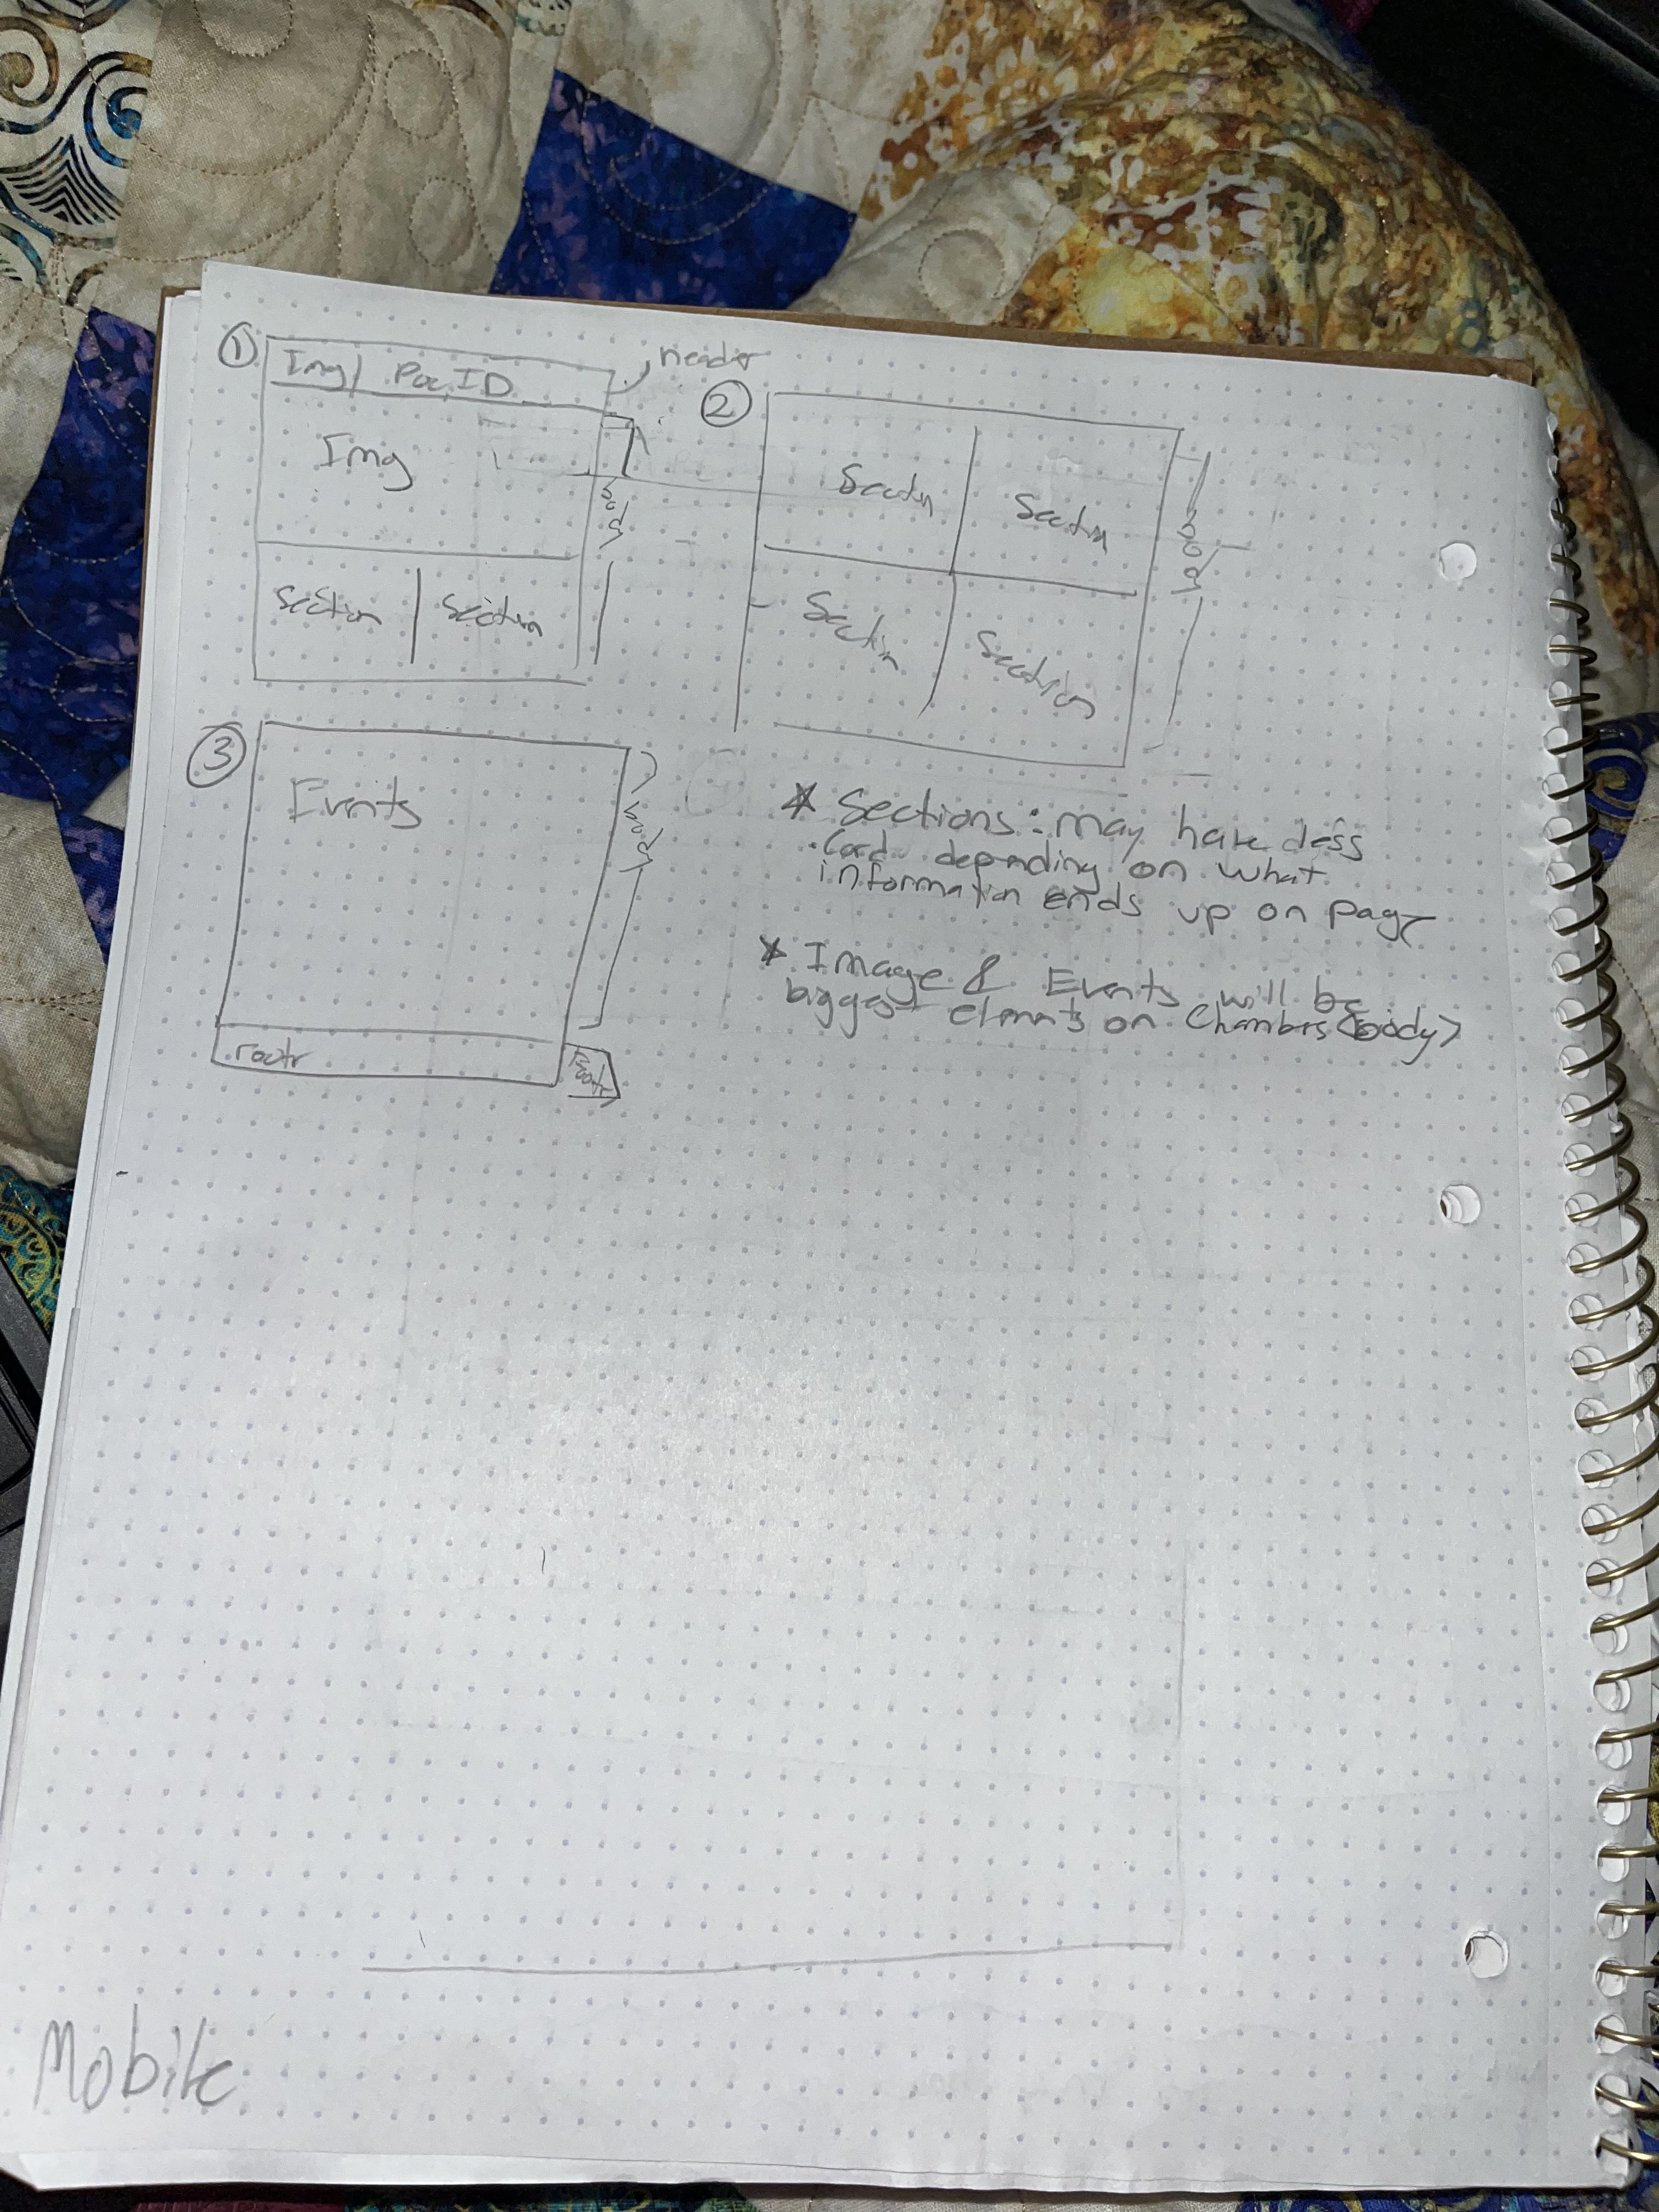 ①
Img
ID
header
Img
body
Section
Section
②
Section
Section
Section
Section
body
③
Events
body
footr
* Sections: may have less
Card depending on what
information ends up on page
* Image & Events will be
biggest elments on Chambers <body>
Mobile